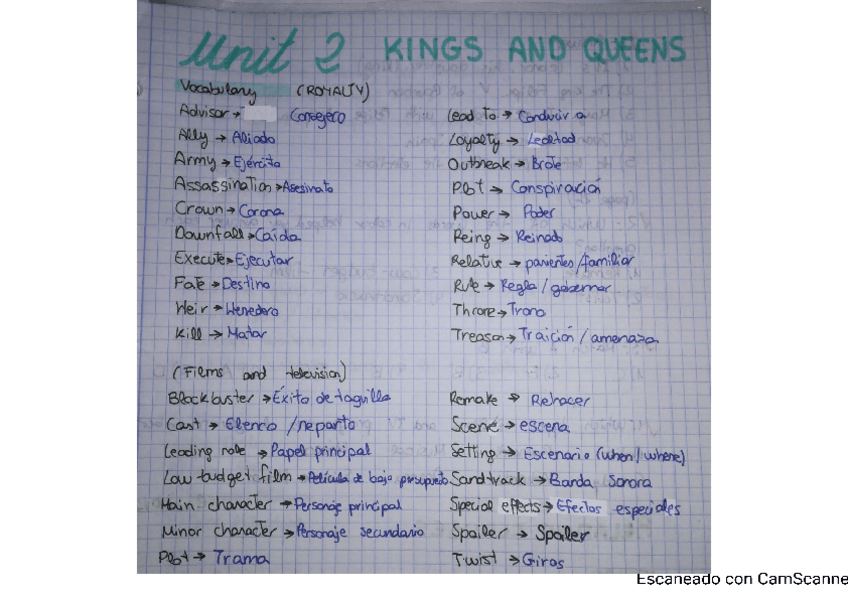 Unit 2 KINGS AND QUEENS
Vocabulary (ROYALTY)
Advisor → Consejero
Ally → Aliado
Army → Ejército
Assassination → Asesinato
Crown → Corona
Downfall → Caída
Execute → Ejecutar
Fate → Destino
Heir → Heredero
Kill → Matar
Lead to → Conducir a
Loyalty → Lealtad
Outbreak → Brote
Plot → Conspiración
Power → Poder
Reing → Reinado
Relative → parientes/familiar
Rule → Regla/gobernar
Throne → Trono
Treason → Traición/amenaza
(Films and television)
Blockbuster → Éxito de taquilla
Cast → Elenco/reparto
Leading role → Papel principal
Low budget film → Película de bajo presupuesto
Main character → Personaje principal
Minor character → Personaje secundario
Plot → Trama
Remake → Rehacer
Scene → escena
Setting → Escenario (when/where)
Sandtrack → Banda sonora
Special effects → Efectos especiales
Spoiler → Spoiler
Twist → Giros
Escaneado con CamScanne